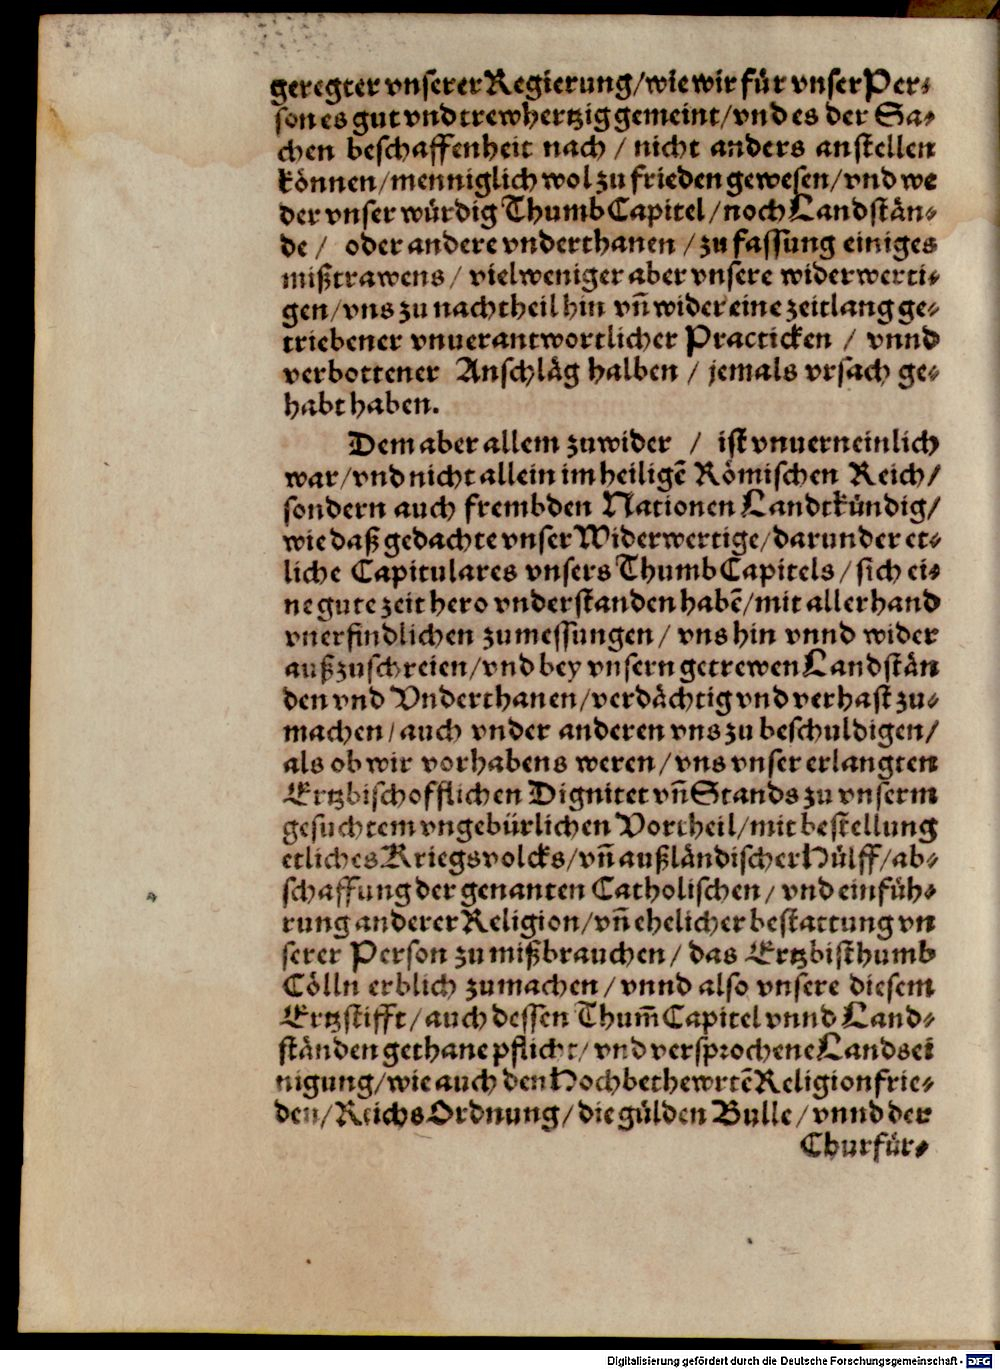 geregter vnserer Regierung/wie wir für vnser Per-
son es gut vnd trewhertzig gemeint/vnd es der Sa-
chen beschaffenheit nach / nicht anders anstellen
können/menniglich wol zu frieden gewesen/vnd we
der vnser würdig Thumb Capitel/noch Landstän-
de / oder andere vnderthanen / zu fassung einiges
mißtrawens / vielweniger aber vnsere widerwerti-
gen/vns zu nachtheil hin vn̄ wider eine zeitlang ge-
triebener vnuerantwortlicher Practicken / vnnd
verbottener Anschläg halben / jemals vrsach ge-
habt haben.
Dem aber allem zuwider / ist vnuerneinlich
war/vnd nicht allein im heiligē Römischen Reich/
sondern auch frembden Nationen Landtkündig/
wie daß gedachte vnser Widerwertige/darunder et-
liche Capitulares vnsers Thumb Capitels / sich ei-
ne gute zeit hero vnderstanden habē/mit allerhand
vnerfindlichen zumessungen / vns hin vnnd wider
außzuschreien/vnd bey vnsern getrewen Landstän
den vnd Vnderthanen/verdächtig vnd verhast zu-
machen/auch vnder anderen vns zu beschuldigen/
als ob wir vorhabens weren/vns vnser erlangten
Ertzbischofflichen Dignitet vn̄ Stands zu vnserm
gesuchtem vngebürlichen Vortheil/mit bestellung
etliches Kriegsvolcks/vn̄ außländischer Hülff/ab-
schaffung der genanten Catholischen / vnd einfüh-
rung anderer Religion/vn̄ ehelicher bestattung vn
serer Person zu mißbrauchen / das Ertzbisthumb
Cölln erblich zumachen / vnnd also vnsere diesem
Ertzstifft/auch dessen Thum̄ Capitel vnnd Land-
ständen gethane pflicht/vnd versprochene Landsei
nigung/wie auch den Hochbethewrtē Religionfrie-
den/Reichs Ordnung/die gülden Bulle/vnnd der
Churfür-
Digitalisierung gefördert durch die Deutsche Forschungsgemeinschaft - DFG